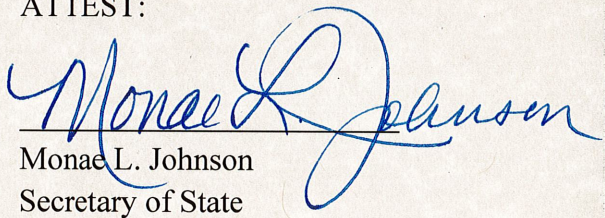 ATTEST:
Monae L. Johnson
Monae L. Johnson
Secretary of State